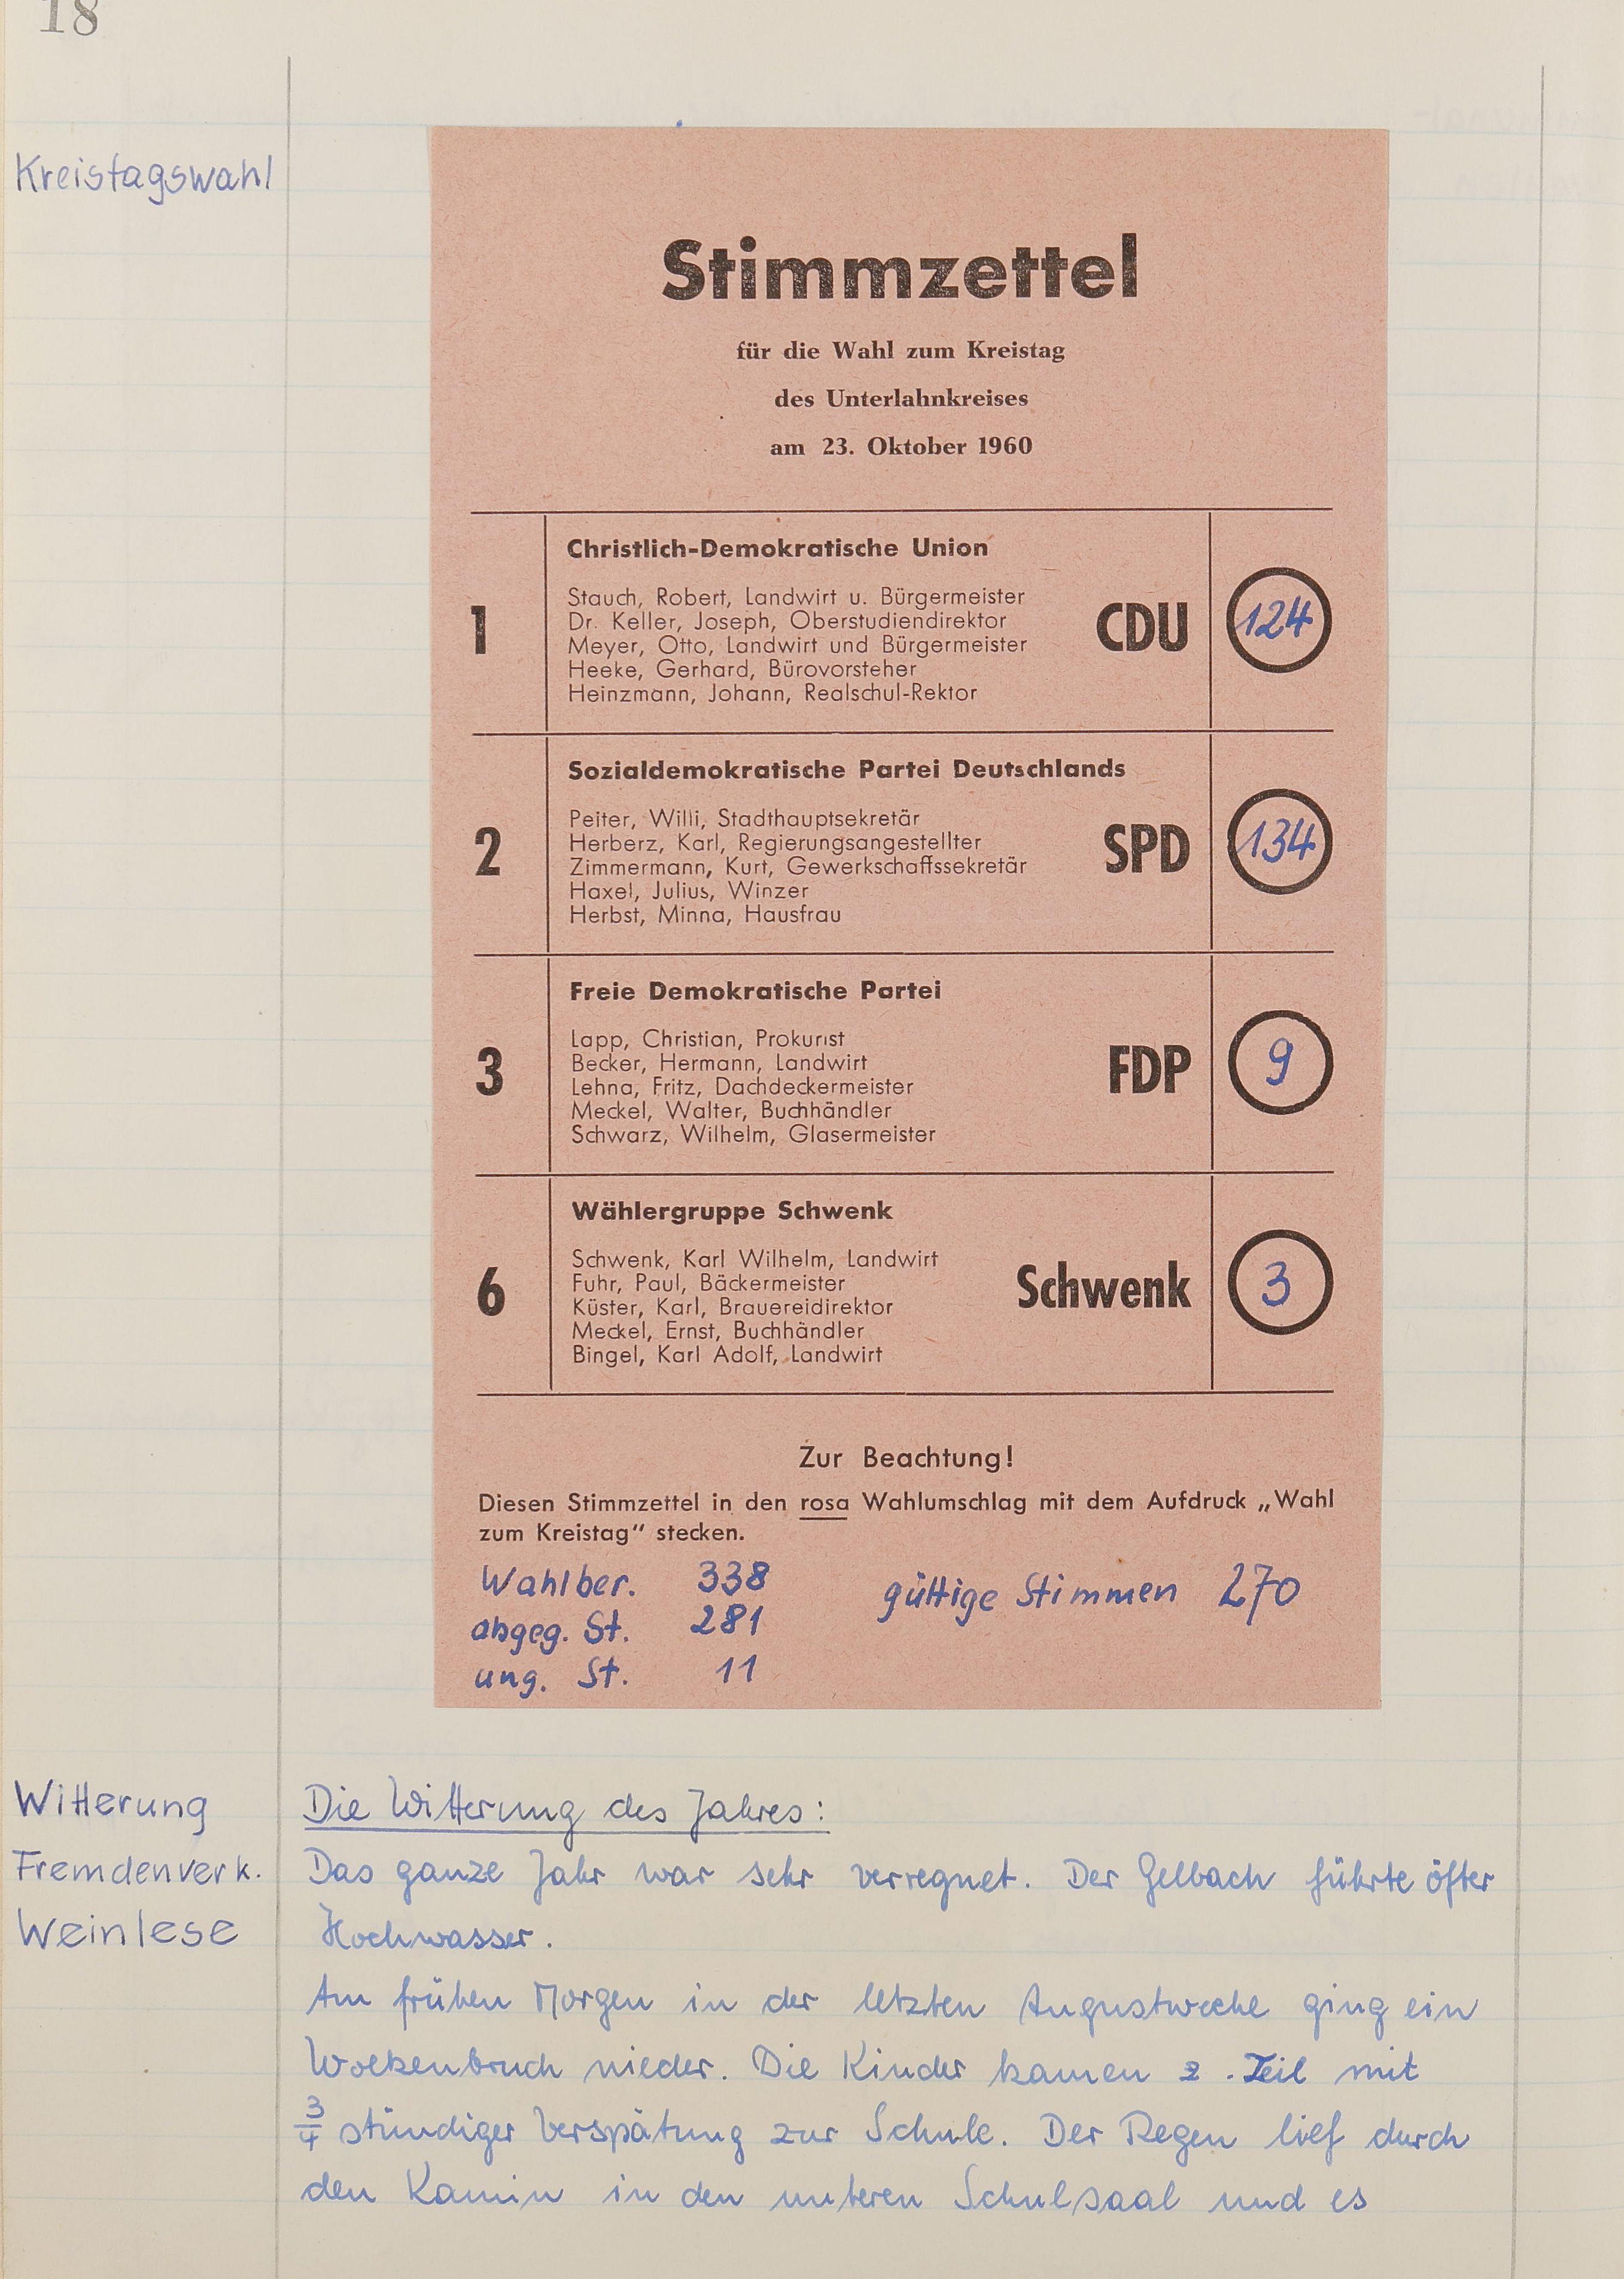 18
Kreistagswahl
Stimmzettel
für die Wahl zum Kreistag
des Unterlahnkreises
am 23. Oktober 1960
1
Christlich-Demokratische Union
Stauch, Robert, Landwirt u. Bürgermeister
Dr. Keller, Joseph, Oberstudiendirektor
Meyer, Otto, Landwirt und Bürgermeister
Heeke, Gerhard, Bürovorsteher
Heinzmann, Johann, Realschul-Rektor
CDU
124
2
Sozialdemokratische Partei Deutschlands
Peiter, Willi, Stadthauptsekretär
Herberz, Karl, Regierungsangestellter
Zimmermann, Kurt, Gewerkschaffssekretär
Haxel, Julius, Winzer
Herbst, Minna, Hausfrau
SPD
134
3
Freie Demokratische Partei
Lapp, Christian, Prokurist
Becker, Hermann, Landwirt
Lehna, Fritz, Dachdeckermeister
Meckel, Walter, Buchhändler
Schwarz, Wilhelm, Glasermeister
FDP
9
6
Wählergruppe Schwenk
Schwenk, Karl Wilhelm, Landwirt
Fuhr, Paul, Bäckermeister
Küster, Karl, Brauereidirektor
Meckel, Ernst, Buchhändler
Bingel, Karl Adolf, Landwirt
Schwenk
3
Zur Beachtung!
Diesen Stimmzettel in den rosa Wahlumschlag mit dem Aufdruck „Wahl
zum Kreistag“ stecken.
Wahlber. 338 gültige Stimmen 270
abgeg. St. 281
ung. St. 11
Witterung
Fremdenverk.
Weinlese
Die Witterung des Jahres:
Das ganze Jahr war sehr verregnet. Der Gelbach führte öfter
Hochwasser.
Am frühen Morgen in der letzten Augustwoche ging ein
Wolkenbruch nieder. Die Kinder kamen z. Teil mit
3/4 stündiger Verspätung zur Schule. Der Regen lief durch
den Kamin in den unteren Schulsaal und es